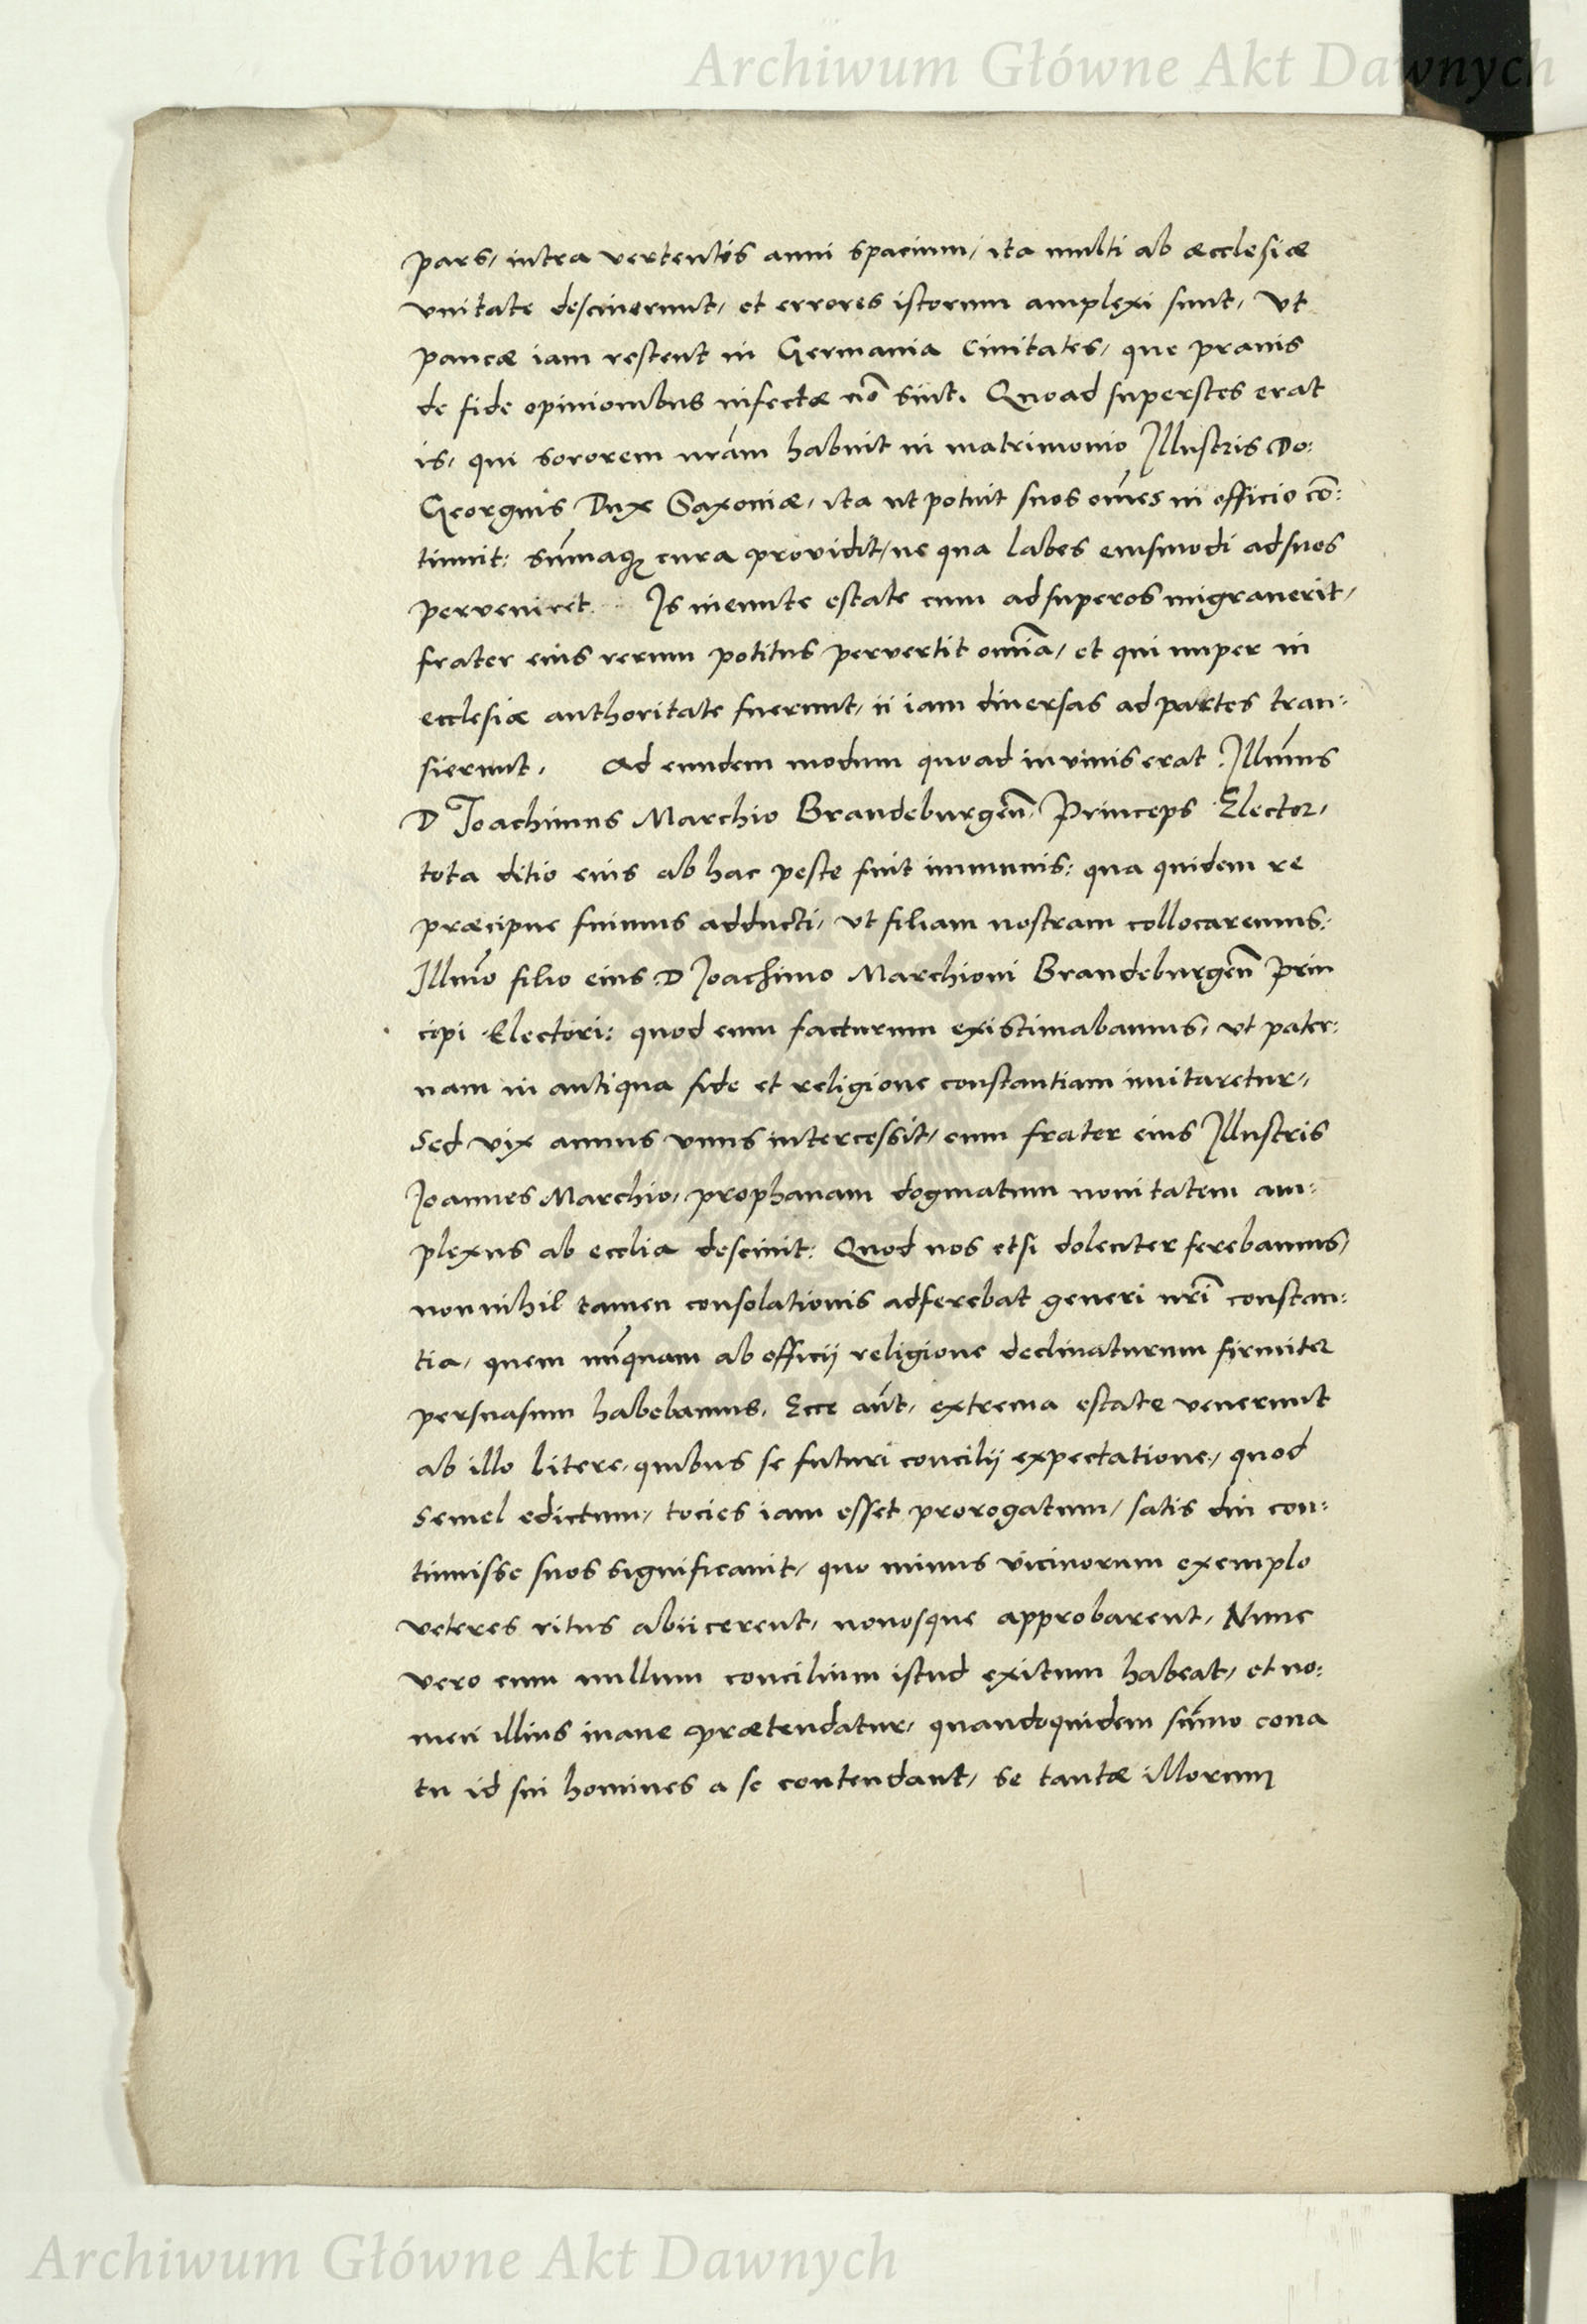 Archiwum Główne Akt Dawnych
pars, intra vertentis anni spacium, ita multi ab æcclesiæ
vnitate desciuerunt, et errores istorum amplexi sunt, vt
paucæ iam restent in Germania Ciuitates, que prauis
de fide opinionibus infectæ nõ sint. Quoad superstes erat
is, qui sororem nrãm habuit in matrimonio Illustris Do:
Georgius Dux Saxoniæ, ita ut potuit suos om̃es in officio cõ:
tinuit: sum̃aqꝫ cura providit, ne qua labes eiusmodi ad suos
perveniret. Is ineunte estate cum ad superos migrauerit,
frater eius rerum potitus pervertit om̃ia, et qui nuper in
ecclesiæ authoritate fuerunt, ii iam diuersas ad partes tran:
sierunt. Ad eundem modum quoad in viuis erat Illm̃us
D Joachimus Marchio Brandeburgeñ. Princeps Elector,
tota ditio eius ab hac peste fuit immunis: qua quidem re
præcipue fuimus adducti, vt filiam nostram collocaremus:
Illm̃o filio eius D Joachimo Marchioni Brandeburgeñ Prin
cipi Electori: quod eum facturum existimabamus, vt pater:
nam in antiqua fide et religione constantiam imitaretur,
Sed vix annus vnus intercessit, cum frater eius Illustris
Joannes Marchio, prophanam dogmatum nouitatem am:
plexus ab ecclia desciuit: Quod nos etsi dolenter ferebamus,
nonnihil tamen consolationis adferebat generi nrĩ constan:
tia, quem nũquam ab officii religione declinaturum firmiter
persuasum habebamus. Ecce aũt, extrema estate venerunt
ab illo litere, quibus se futuri concilii expectatione, quod
semel edictum, tocies iam esset prorogatum, satis diu con:
tinuisse suos significauit, quo minus vicinorum exemplo
veteres ritus abiicerent, nouosque approbarent, Nunc
vero cum nullum concilium istud exitum habeat, et no:
men illius inane prætendatur, quandoquidem sum̃o cona
tu id sui homines a se contendant, se tantæ illorum
Archiwum Główne Akt Dawnych